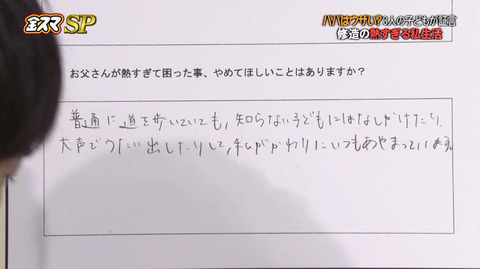 金スマSP
パパはウザい?3人の子どもが証言
修造の熱すぎる私生活
お父さんが熱すぎて困った事、やめてほしいことはありますか?
普通に道を歩いていても、知らない子どもにはなしかけたり、
大声でうたい出したりして、私がかわりにいつもあやまっています。